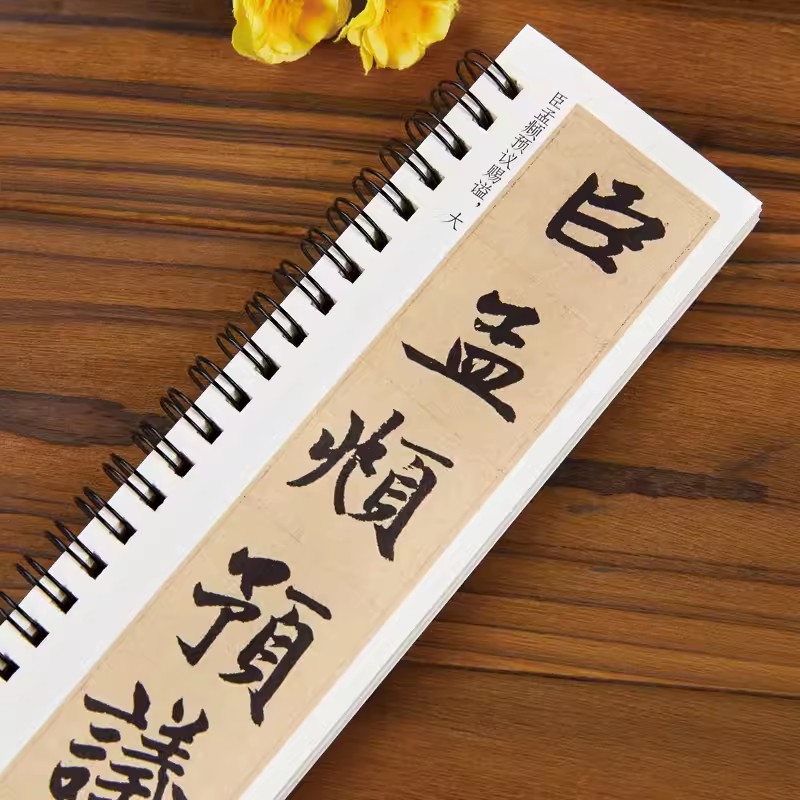 臣孟頫預議
臣孟頫预议赐谥，大